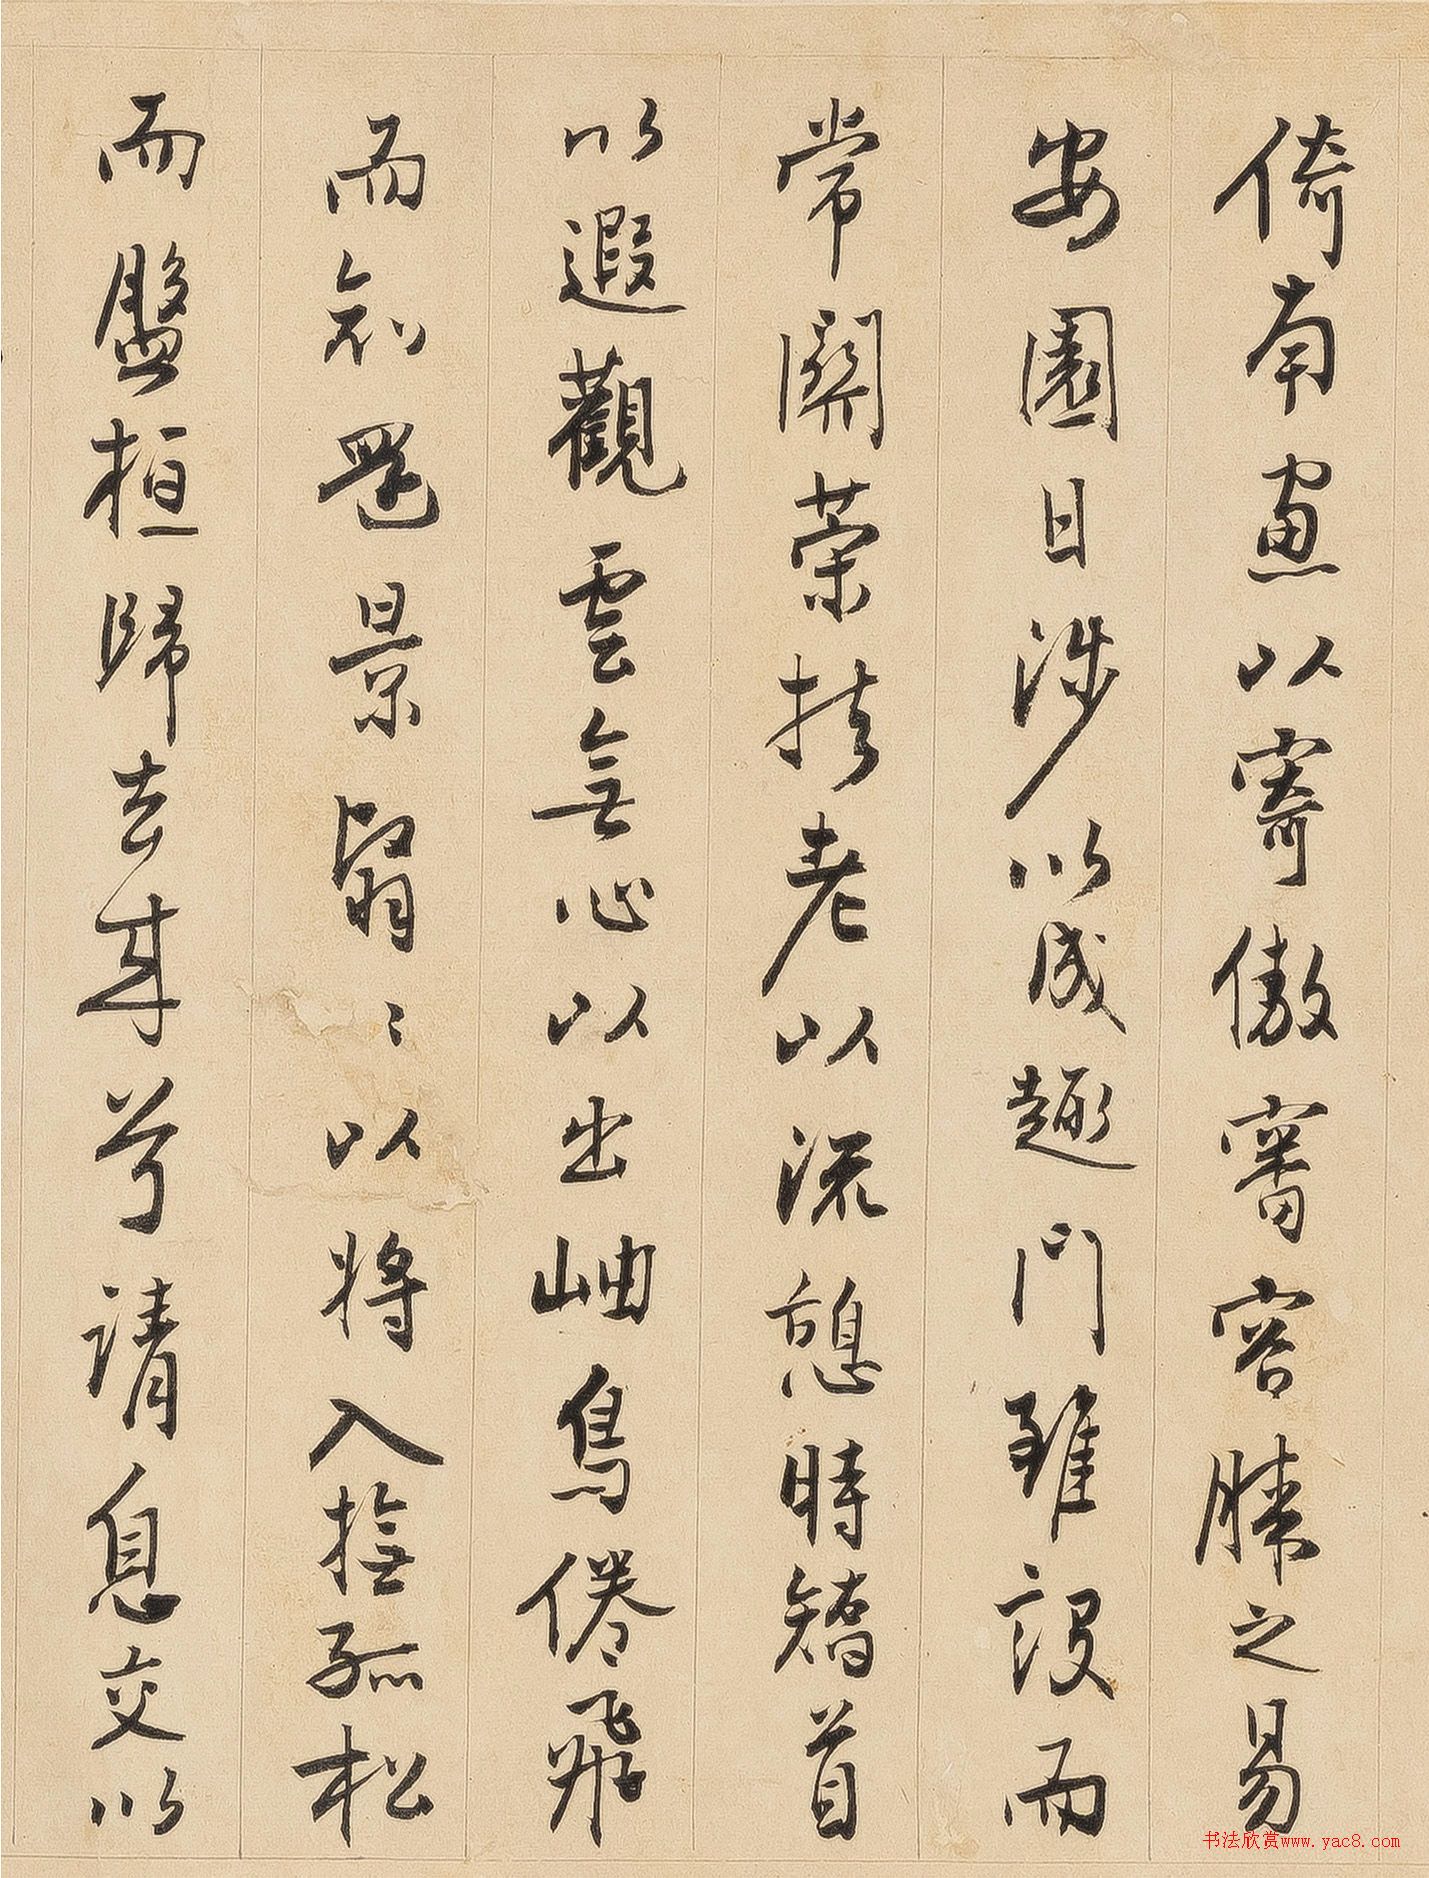 倚南窓以寄傲審容膝之易
安園日涉以成趣門雖設而
常關榮扶老以流憩時矯首
以遐觀雲無心以出岫鳥倦飛
而知還景翳〻以將入撫孤松
而盤桓歸去来兮請息交以
书法欣赏www.yac8.com